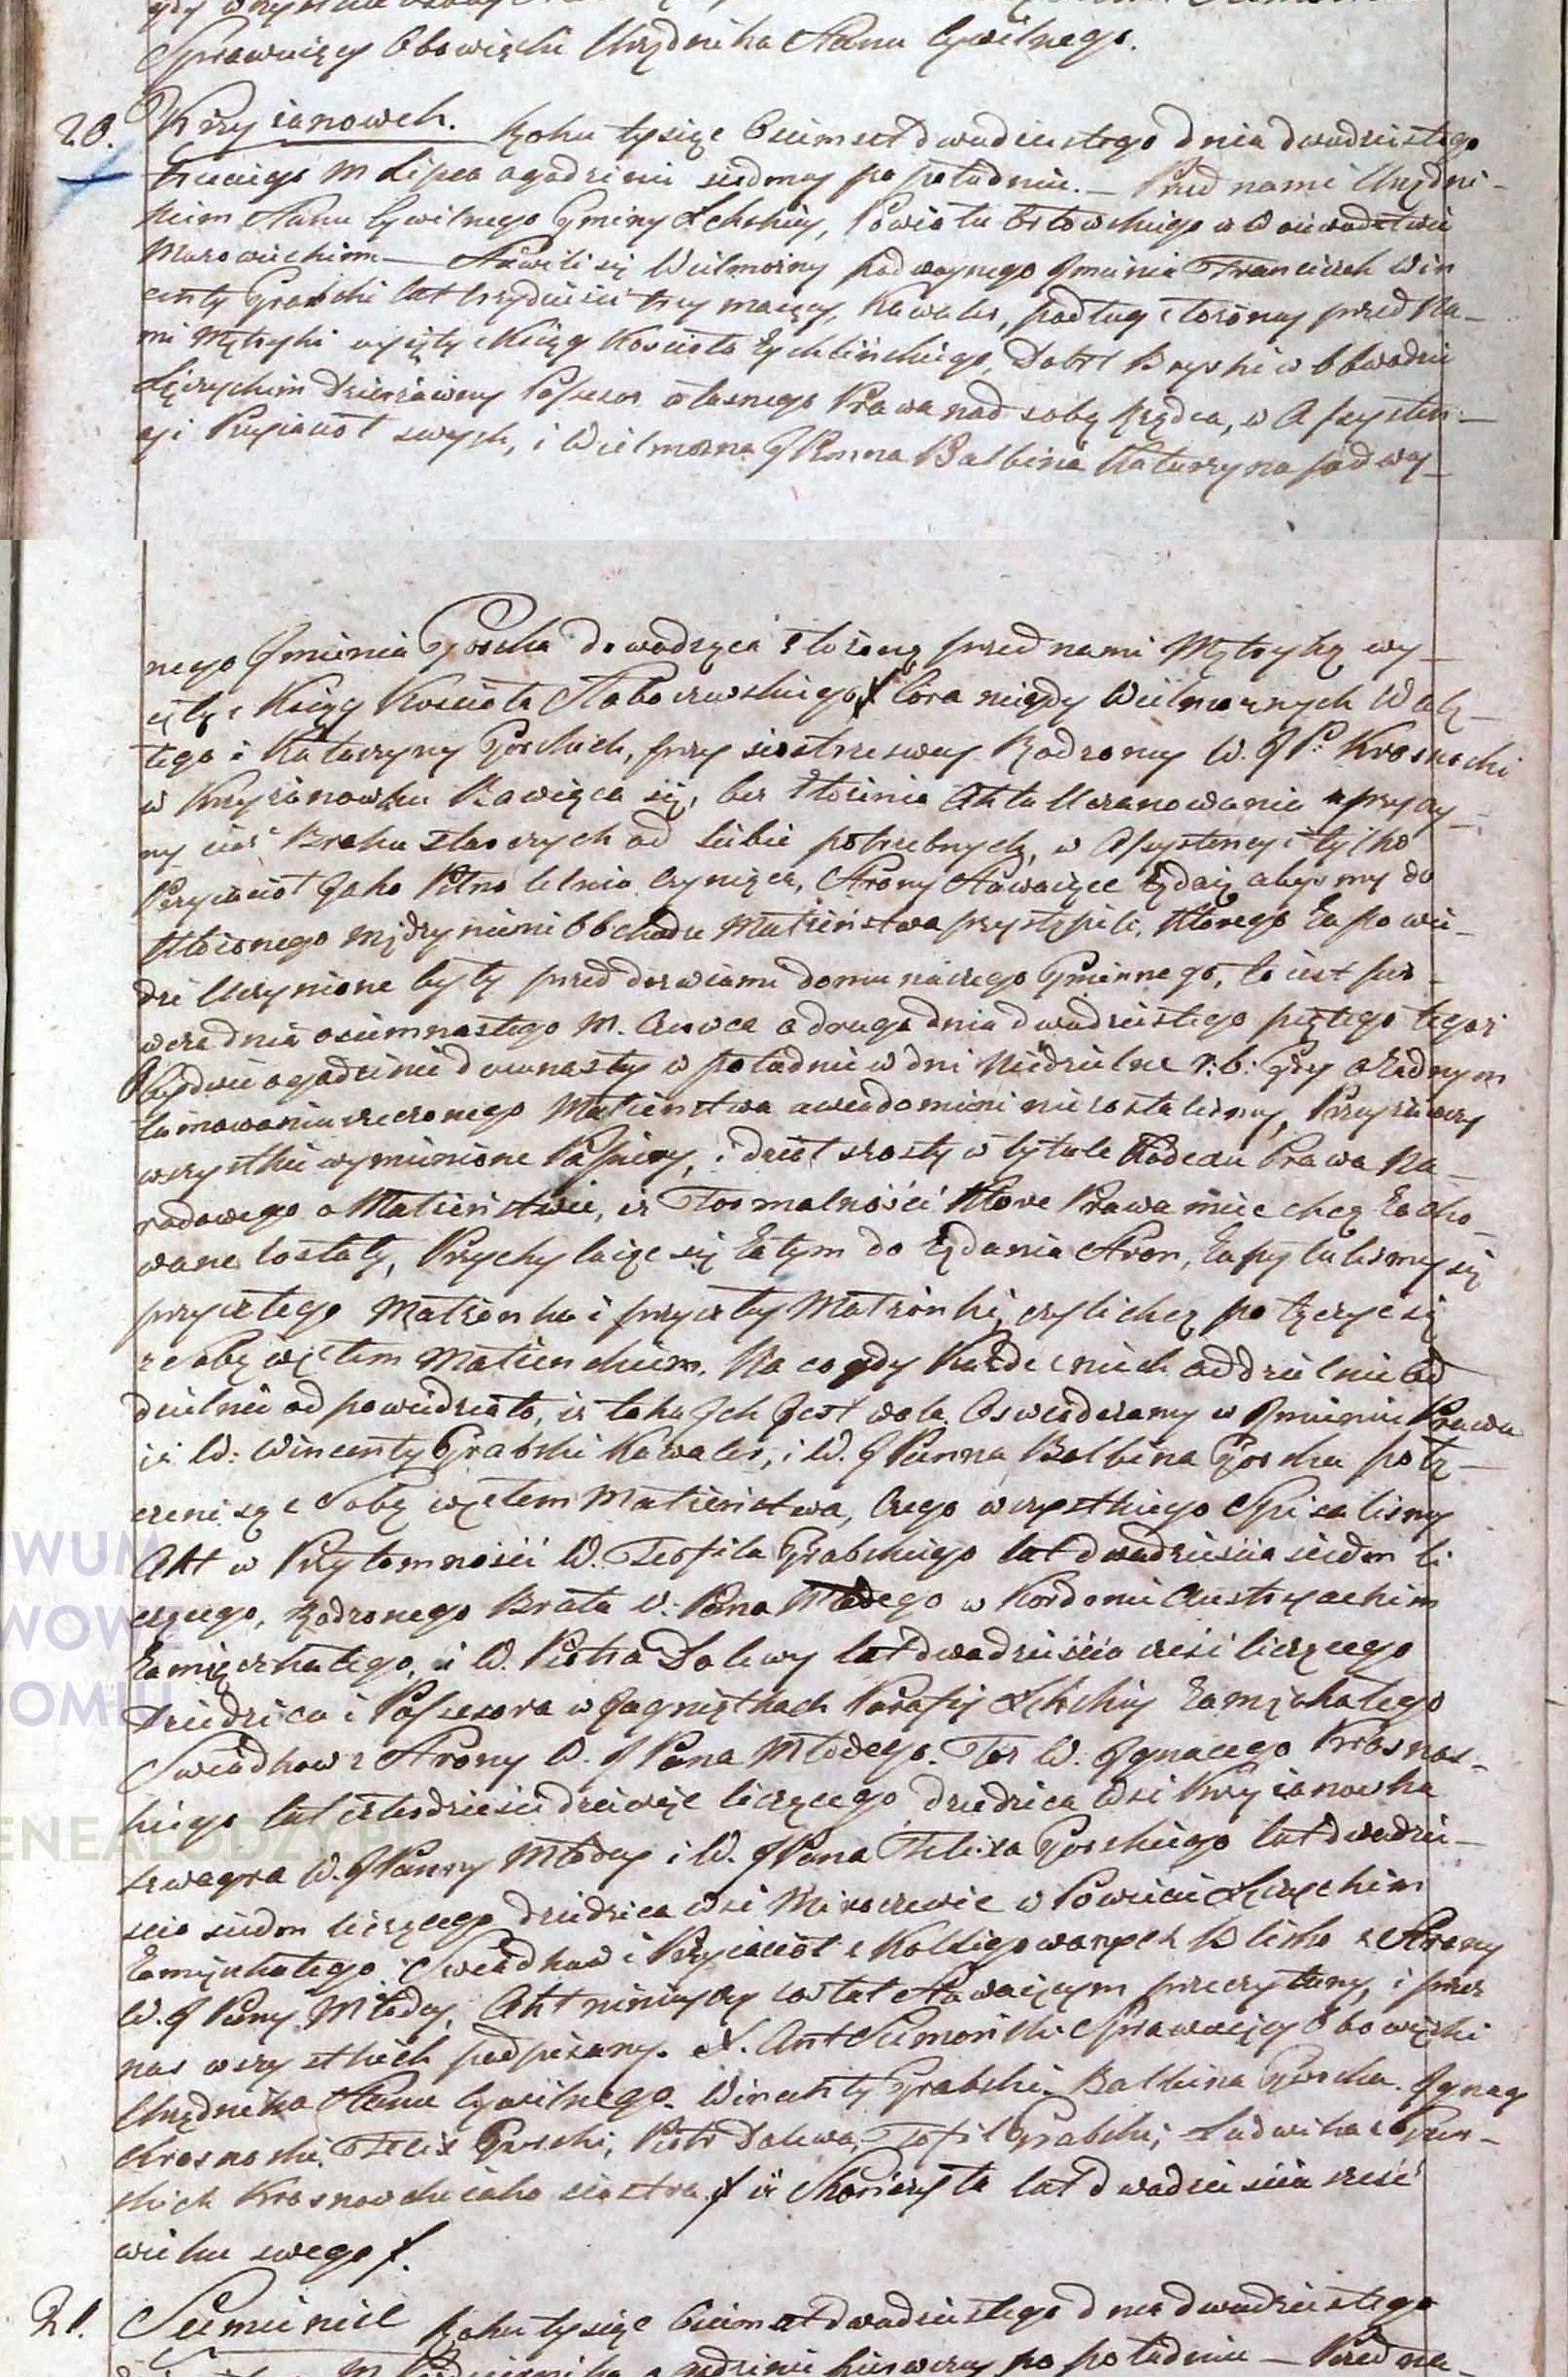 Sprawuiący Obowiązki Urzędnika Stanu Cywilnego.
20. Krzyżanowek. Roku tysiąc Osimset dwudziestego dnia dwudziestego
trzeciego M Lipca o godzinie siodmey po południu. — Przed nami Urzędni-
kiem Stanu Cywilnego Gminy Łękskiey, Powiatu Orłowskiego w Woiewodztwie
Mazowieckim — Stawili się Wielmożny podwoynego Jmienia Franciszek Win
centy Grabski lat trzydzieści trzy maiący, Kawaler, podług złożoney przed Na-
mi Metryki wyiętey z Xiąg Kościoła Żychlińskiego, Dobr Bryski w Obwodzie
Łęczyckim Dzierżawny Possessor własnego Prawa nad sobą Rządca, w Assysten-
cyi Przyiaciół swych, i Wielmożna JPanna Balbina Katarzyna podwoy-
nego Jmienia Gorska dowodząca złożoną przed nami Metryką wy-
iętą z Xiąg Kościoła Stoboczewskiego f Cora niegdy Wielmożnych Walę-
tego i Katarzyny Gorskich, przy siostrze swey Rodzoney W. JP. Krosnoski
w Krzyżanowku Bawiąca się, bez złożenia Aktu Uszanowania z przyczy-
ny iuż Braku starszych od siebie potrzebnych, w Assystencyi tylko
Przyiaciół Jako Pełno letnia czyniąca, Strony Stawaiące żądaią abyśmy do
ułożonego między niemi Obchodu Małżeństwa przystąpili, którego Zapowie-
dzi Uczynione były przed drzwiami domu naszego Gminnego, to iest pier-
wsza dnia osiemnastego M. Czerwca a druga dnia dwudziestego piątego tegoż
Obydwie o godzinie dwunastey w południe w dni Niedzielne r: b: Gdy o żadnym
tamowaniu rzeczonego Małżeństwa uwiadomieni nie zostaliśmy, Przeyrzawszy
wszystkie wymienione Papiery, i dział szosty w tytule Kodexu Prawa Na-
rodowego o Małżeństwie, iż Formalności które Prawa mieć chcą Zacho-
wane zostały, Przychylaiąc się Zatym do żądania Stron, Zapytaliśmy się
przyszłego Małżonka i przyszłey Małżonki, czyli chcą połączyć się
z sobą węzłem Małżeńskim. Na co gdy Każde z nich oddzielnie od
dzielnie odpowiedziało, iż taka Jch Jest wola. Oswiadczamy w Jmieniu Prawa
iż W: Wincenty Grabski Kawaler, i W. JPanna Balbina Gorska połą-
czeni są z Sobą węzłem Małżeństwa, Czego wszystkiego Spisaliśmy
Akt w Przytomności W. Teofila Grabskiego lat dwadzieścia siedm li
czącego, Rodzonego Brata W: Pana Młodego w Kordonie Austryackim
Zamięszkałego, i W. Piotra Dolewy lat dwadzieścia sześć liczącego
Dziedzica i Possesora w Jagniątkach Parafij Łękskiey Zamięszkałego
Swiadkow z Strony W. JPana Młodego. Toż W. Jgnacego Krosnos-
kiego lat czterdzieści dziewięć liczącego dziedzica Wsi Krzyżanowka
szwagra W. JPanny Młodey i W. JPana Felixa Gorskiego lat dwadzie-
scia siedm liczącego dziedzica Wsi w Powiecie Łęczyckim
Zamięszkałego Swiadkow i Przyiaciół z Kolligowanych Blisko z Strony
W. JPanny Młodey, Akt ninieyszy został Stawaiącym przeczytany, i przez
nas wszystkich podpisany. X. Ant Sprawuiący Obowiązki
Urzędnika Stanu Cywilnego. Wincenty Grabski. Balbina Gorska. Jgnacy
Krosnoski. Felix Gorski, Piotr Dolewa, Teofil Grabski, Ludwika z Gor-
skich Krosnowska iako siostra f iż Skończyła lat dwadzieścia sześć
wieku swego f.
21. Siemienice Roku tysiąc Osimset dwudziestego dnia dwudziestego